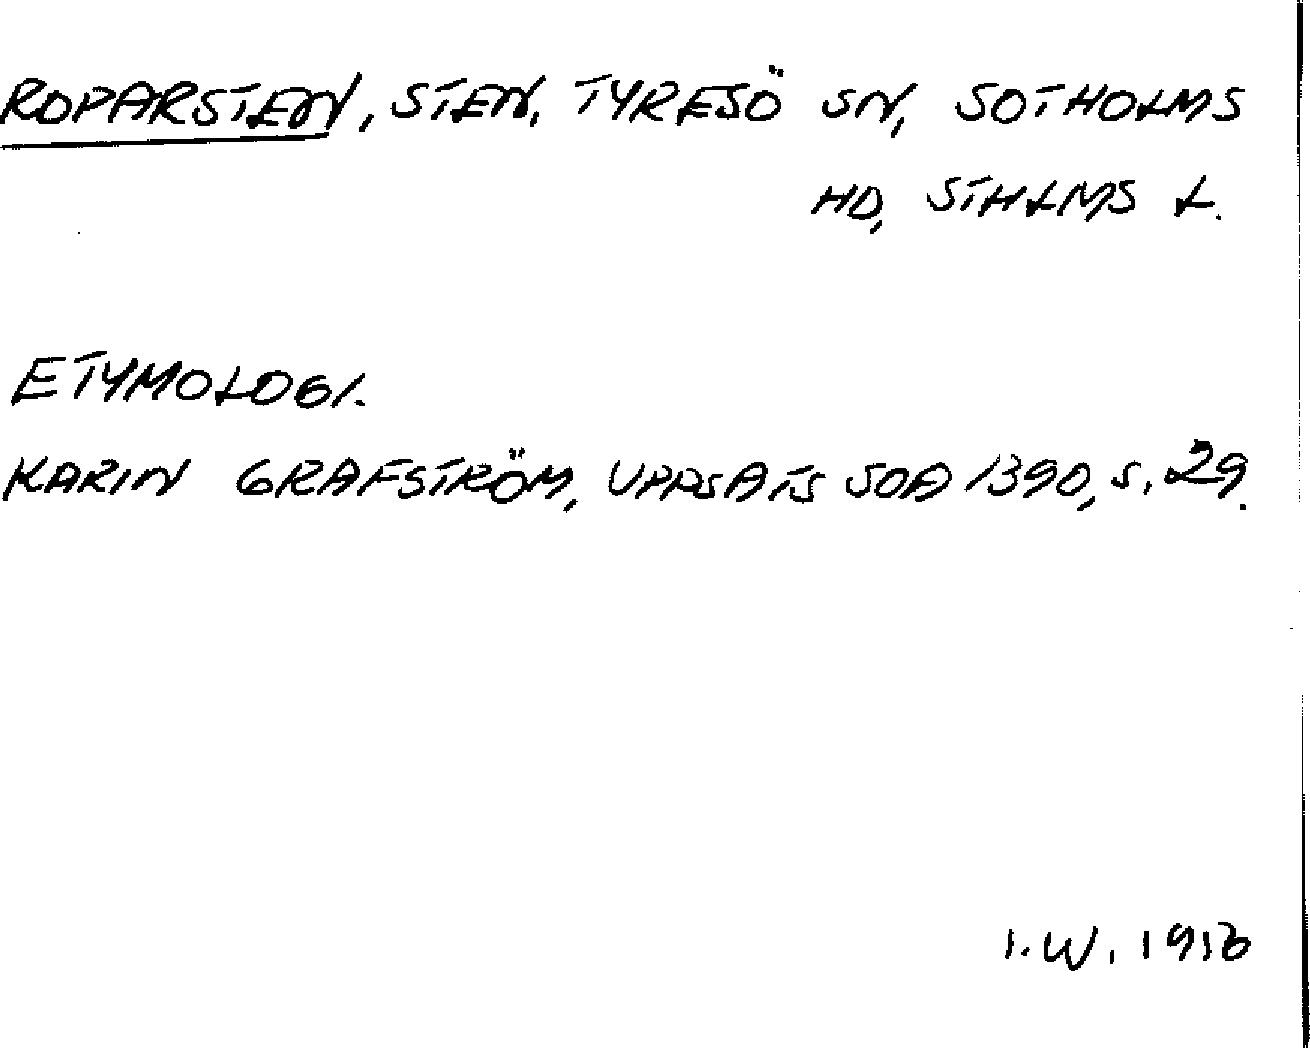 ROPARSTEN, STEN, TYRESÖ SN, SOTHOLMS
HD, STHLMS L.
ETYMOLOGI.
KARIN GRAFSTRÖM, UPPSATS SOA 1390, S. 29.
I.W.